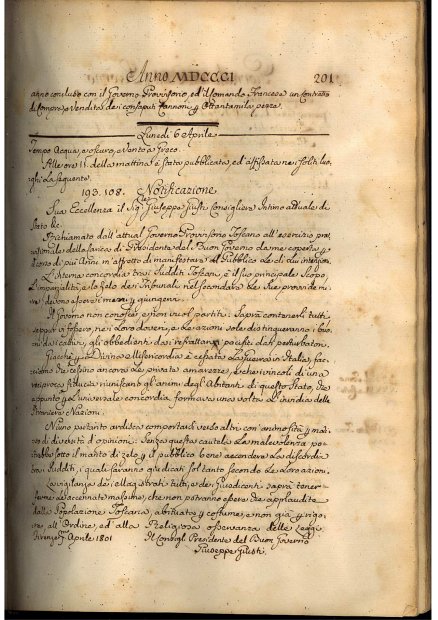 Anno MDCCCI 201
anno concluso con il Governo Provvisorio, ed il Comando Francese un Contratto
di Compra, e Vendita dei Cannoni, Ottantamila
Lunedi 6 Aprile
Tempo Acqua, e oscuro, e Vento a Greco.
Alle ore 11. della mattina è stata pubblicata, ed affissata nei soliti luo,
ghi la seguente.
193. 108. Notificazione
Sua Eccellenza il Sig. Giuseppe Giusti Consigliere Intimo attuale di
Stato &c.
Richiamato dall'attual Governo Provvisorio Toscano all'esercizio prov
della carica di Presidente del Buon Governo da me coperta
di più Anni m'affretto di manifestare al Pubblico le di lui intenzioni.
L'interna concordia tra i Sudditi Toscani, è il suo principale Scopo,
L'imparzialità, e lo zelo dei Tribunali nel secondare le sue provvide mi,
re, devono essere i mezzi per giungervi.
Il Governo non conosce, e non vuol partiti. Saprà contenerli tutti
seppur vi fossero, nei Loro doveri, e le azioni sole distingueranno i buo
ni dai cattivi, gli obbedienti dai refrattari, i pacifici dai perturbatori.
Giacchè per Divina Misericordia è cessata la Guerra in Italia, fac,
ciano ancora le private amarezze, e che i vincoli di una
reciproca fiducia riuniscano gli animi degli Abitanti di questo Stato, che
appunto per l'universale concordia formava una volta l'invidia delle
straniere Nazioni.
Niuno pertanto ardisca comportarsi verso altri con animosità per moti,
vi di diversità d'opinioni. Senza questa cautela la malevolenza po,
trebbe sotto il manto di zelo per il pubblico bene accendere la discordia
tra i Sudditi, i quali saranno giudicati soltanto secondo le Loro azioni.
La vigilanza dei Magistrati tutti, e dei Giusdicenti saprà tener
ferme le accennate massime, che non potranno essere che applaudite
dalla Popolazione Toscana, abituata per costume, e non già per rigo,
re, all'Ordine, ed alla Religiosa osservanza delle leggi.
Firenze 5 Aprile 1801
Il Consigl. Presidente del Buon Governo
Giuseppe Giusti.